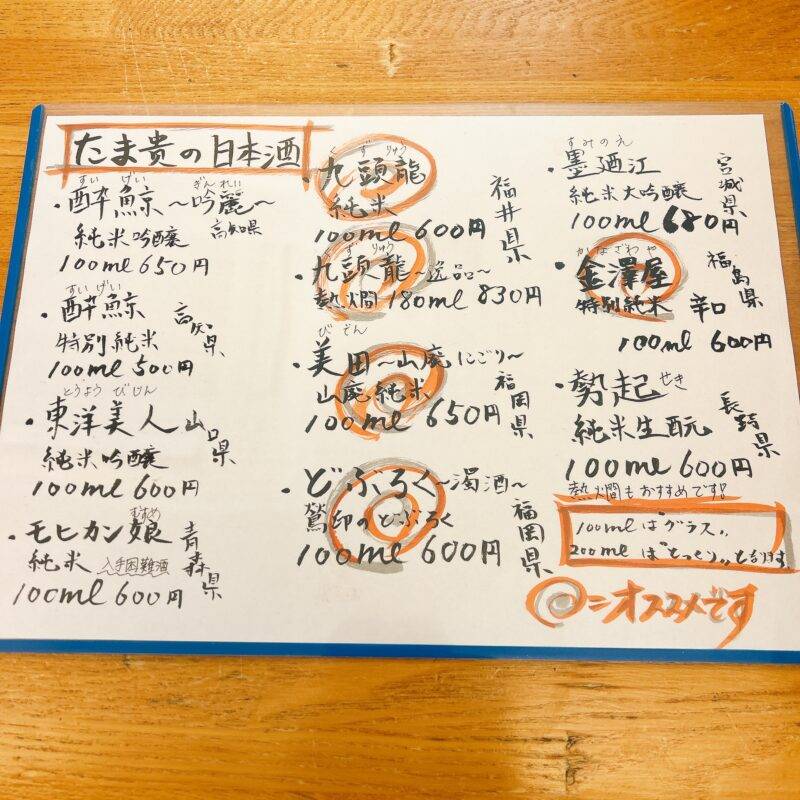 たま貴の日本酒
すいげい ぎんれい
・酔鯨～吟麗～
純米吟醸 高知県
100ml 650円
すいげい
・酔鯨 高知県
特別純米
100ml 500円
とうようびじん
・東洋美人 山口県
純米吟醸
100ml 600円
むすめ
・モヒカン娘 青森県
純米 入手困難酒
100ml 600円
くずりゅう
・九頭龍 福井県
純米
100ml 600円
くずりゅう
・九頭龍～逸品～
熱燗 180ml 830円
びでん
・美田～山廃にごり～
山廃純米 福岡県
100ml 650円
・どぶろく～濁酒～
鷲印のどぶろく 福岡県
100ml 600円
すみのえ
・墨廼江 宮城県
純米大吟醸
100ml 680円
かなざわや
・金澤屋 福島県
特別純米 辛口
100ml 600円
・勢起 せき 長野県
純米生酛
100ml 600円
熱燗もおすすめです!
100mlは"グラス"
200mlは"とっくり"となります
◎=オススメです